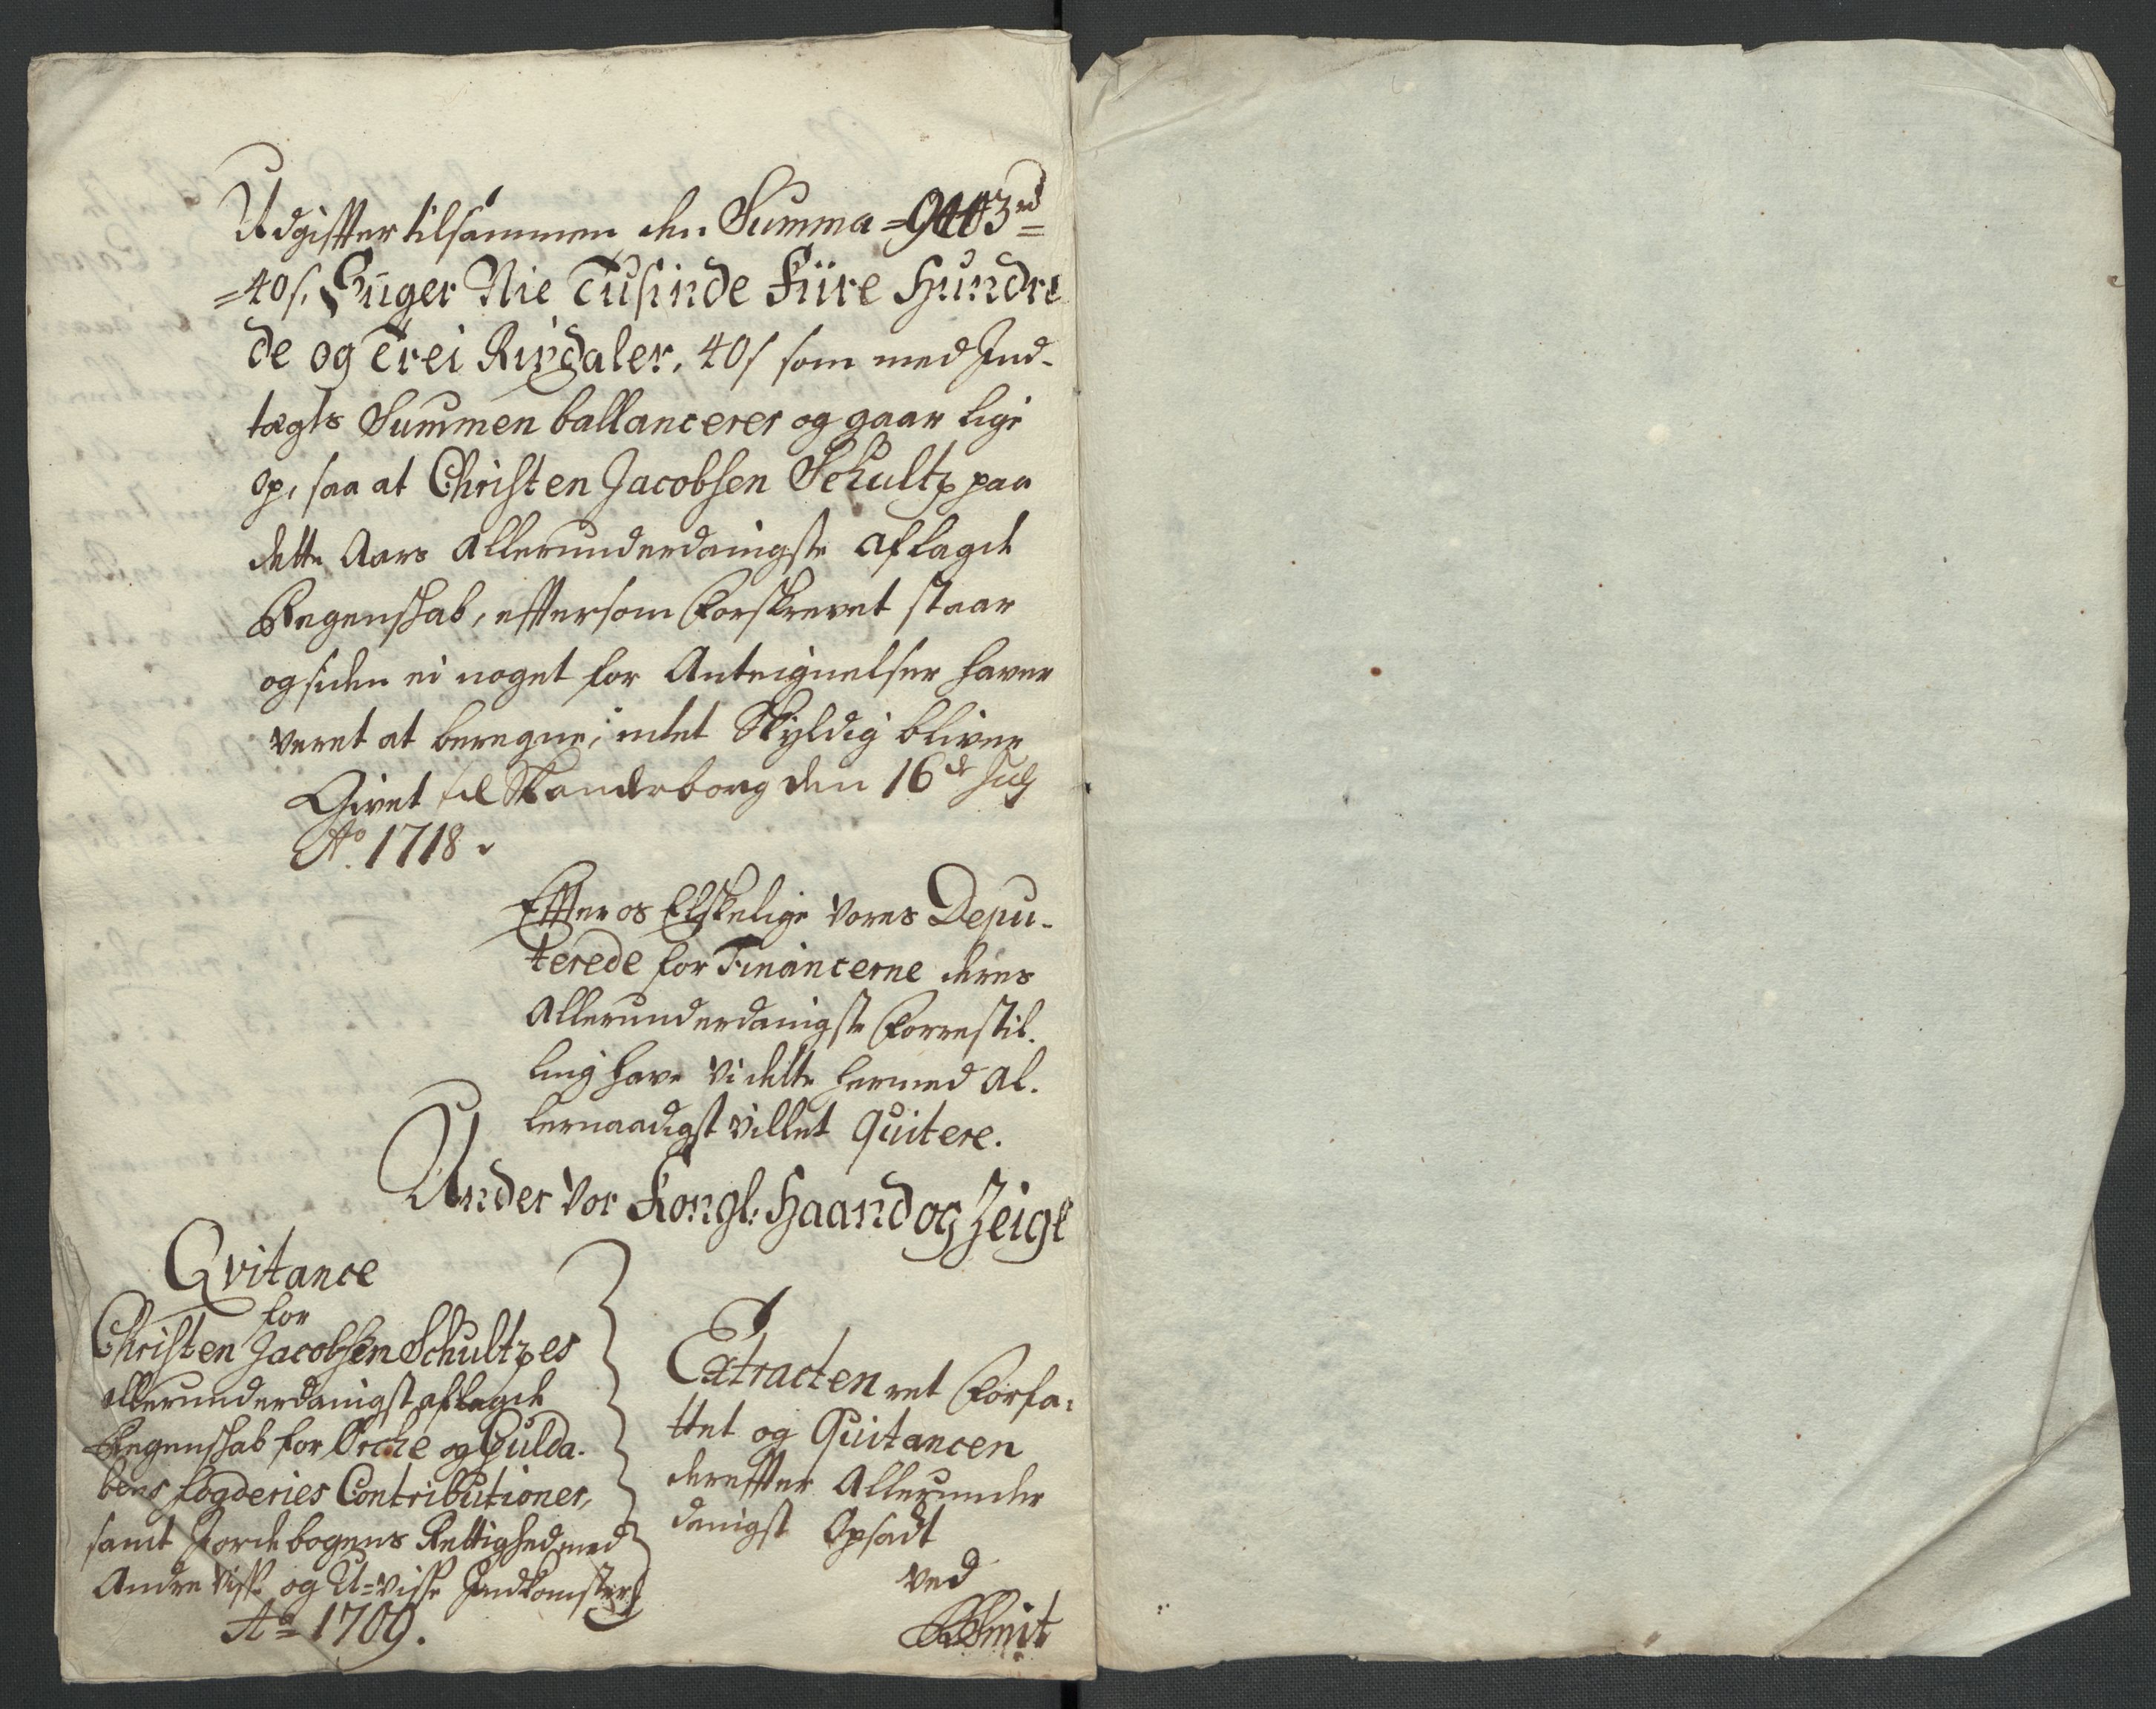 Udgiffter tilsammen den Summa =9403 rd
=40 s, Siiger Nie Tusinde Fiire Hundre
de og Trei Rixdaler, 40 s som med Ind-
tægts Summen ballancerer og gaar lige
op, saa at Christen Jacobsen Schultz paa
dette Aars Allerunderdanigste aflagde
Regenskab, eftersom Forskrevet staar
og siden ei noget for Anteignelser haver
veret at beregne, intet Skyldig bliver
Givet paa Skanderborg den 16de July
Ao. 1718.
Effter os Elskelige Vores Depu-
terede for Financerne deres
Allerunderdanigste Forrestil-
ling have Vi dette hermed Al-
lernaadigst Villet Quitere.
Under Vor Kongl: Haand og Zeigl
Qvitance
for
Christen Jacobsen Schultzes
allerunderdanigst aflagde
Regenskab for Orche og Guldа-
lens fogderies Contributioner,
samt Jordebogens Rettighed med
Andre Visse og U=visse Indkomster
Ao= 1709.
Extracten ret Forfa-
ttet og Quitancen
dereffter Allerunder
danigst Opsadt
ved
Smit